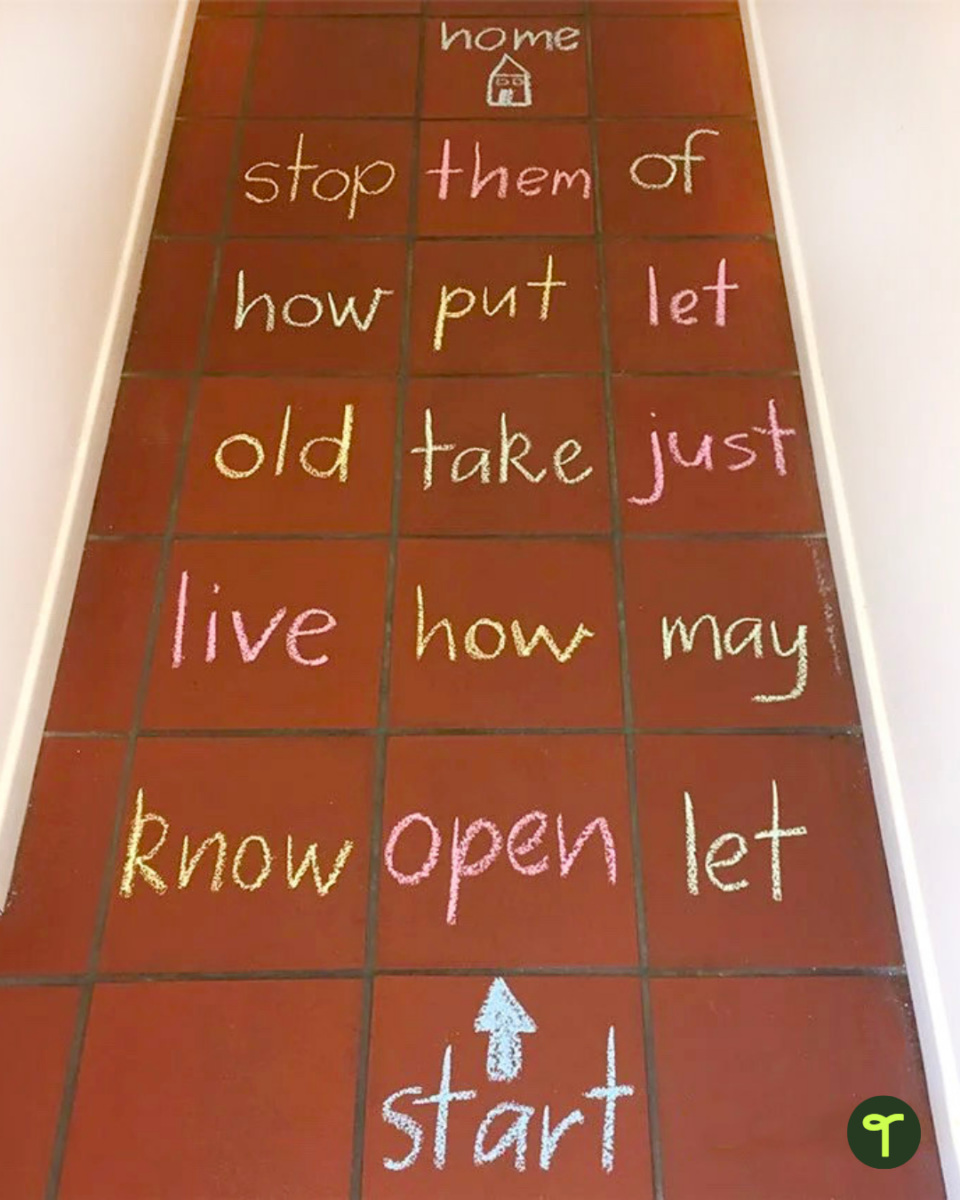 home
stop them of
how put let
old take just
live how may
know open let
start